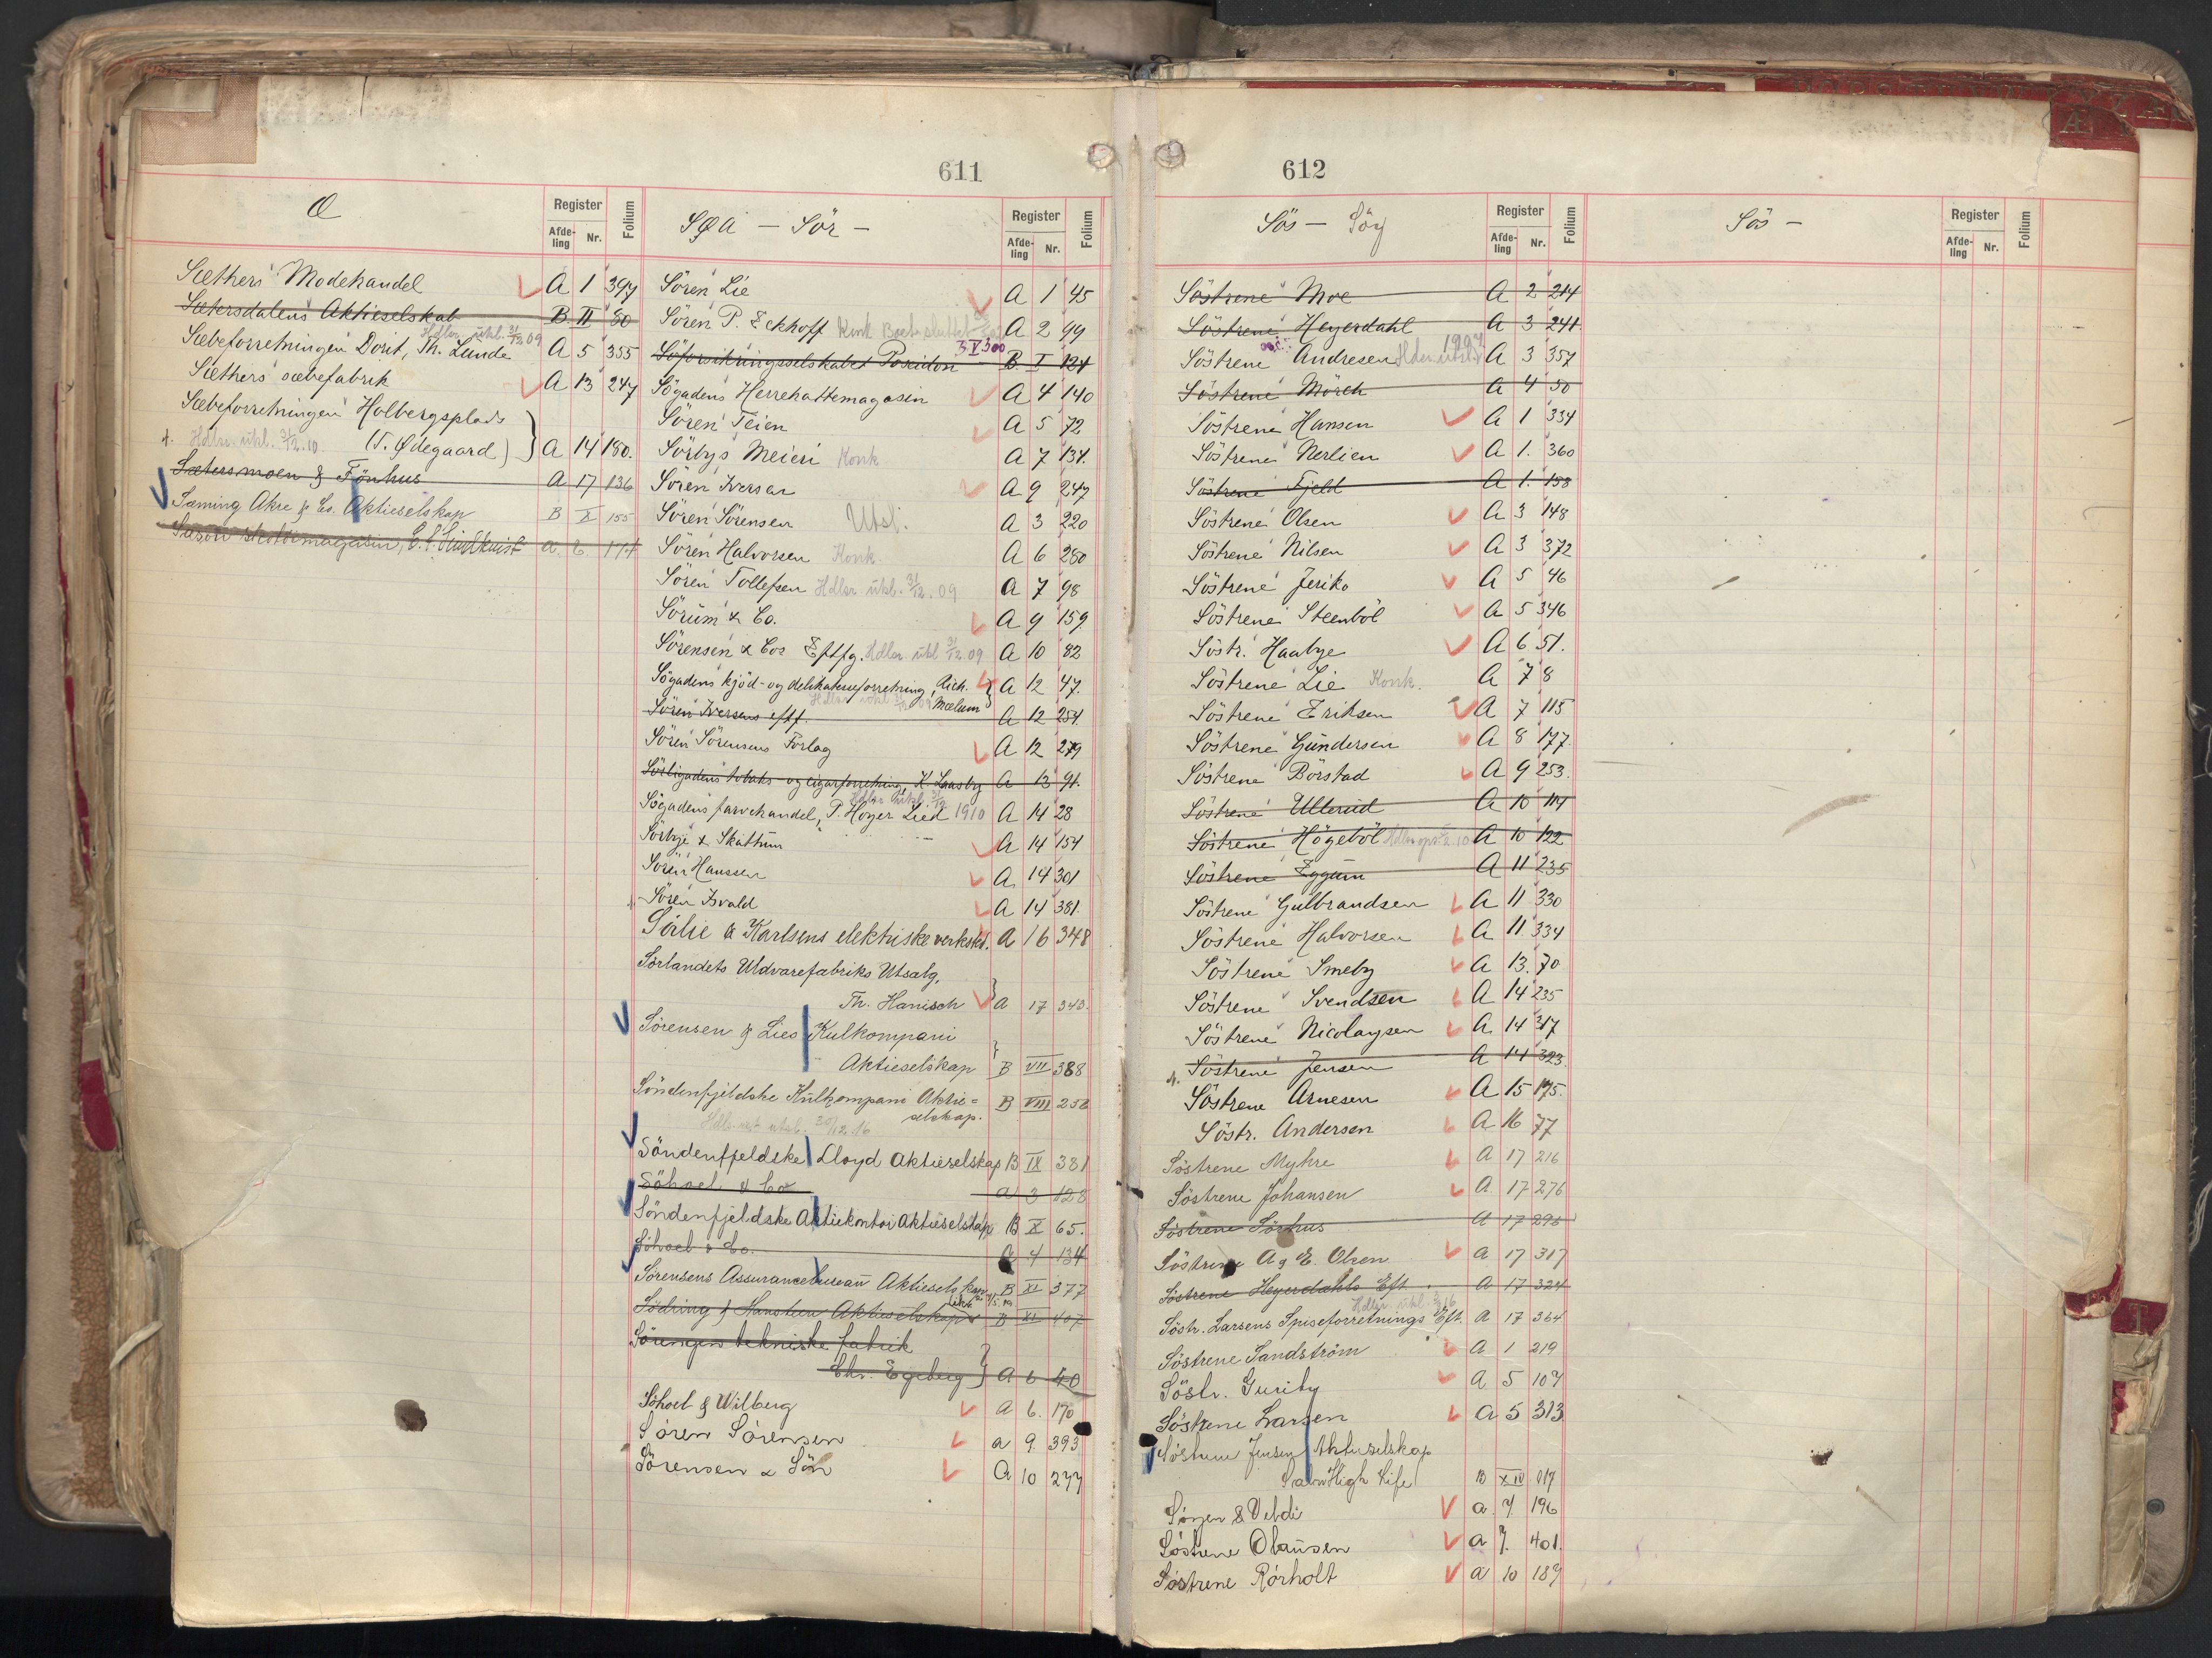 611
Æ
Register
Afde-
ling
Nr.
Folium
Sæthers Modehandel A 1 394
Sætersdalens Aktieselskab B II 80
Hdler. utsl. 31/12 09
Sæbeforretningen Dorit, Th. Lunde A 5 355
Sæthers sæbefabrik A 13 247
Sæbeforretningen Holbergsplads
Hdler. utsl. 31/12.10. (T. Ødegaard) A 14 180.
Sætersmoen & Fönhus A 17 136
Sæming Akre & Co. Aktieselskap B X 155
skotöimagasin,
SØA - Sör -
Register
Afde-
ling
Nr.
Folium
Sören Lie A 1 45
Sören P. Eckhoff Konk A 2 99
Söforsikringsselskabet Poseidon B I 124
Sögadens Herrehattemagasin A 4 140
Sören Teien A 5 72
Sörbys Meieri Konk A 7 134.
Sören Iversen A 9 247
Sören Sörensen Utsl. A 3 220
Sören Halvorsen Konk A 6 280
Sören Tollefsen Hdler utsl. 31/12.09 A 7 98
Sörum & Co. A 9 159
Sörensen & Cos Eftfg. Hdler utsl 31/12.09 A 10 82
Sögadens kjöd- og delikatesseforretning, Rich. A 12 47.
Mælum
Sören Iversens eftf. A 12 254.
Sören Sörensens Forlag A 12 279
Sörligadens tobaks- og cigarforretning, K. Laasby A 13 91.
Sögadens farvehandel, P. Hoyer Lied 1910 A 14 28
Sörbye & Skattum A 14 154
Sören Hanssen A. 14 301
Sören Isvald A 14 381.
Sörlie & Karlsens elektriske verksted. A 16 348
Sörlandets Uldvarefabriks Utsalg,
Th. Hanisch A 17 343.
Sörensen & Lies Kulkompani
Aktieselskap B VII 388
Söndenfjeldske Kulkompani Aktie= B VIII 258
selskap.
utsl. 30/12.16
Söndenfjeldske Lloyd Aktieselskap B IX 381
Söhoel & Co a 3 128
Söndenfjeldske Aktiekontor Aktieselskap B X 65.
Söhoel & Co. a 4 134
Sörensens Assurancebureau Aktieselskap B XI 377
Södring & Hanstten Aktieselskap B XI 407
Sörengens tekniske fabrik
Chr. Egeberg A 6 40
Söhoel & Wilberg A 6. 170
Sören Sörensen a 9. 393
Sörensen & Sön A 10 277
612
Sös - Söy
Register
Afde-
ling
Nr.
Folium
Söstrene Moe A 2 214
Söstrene Heyerdahl A 3 241
Söstrene Andresen A 3 357
Söstrene Mörch A 4 50
Söstrene Hansen A 1 334
Söstrene Nerlien A 1. 360
Söstrene Fjeld A 1. 158
Söstrene Olsen A 3 148
Söstrene Nilsen A 3 372
Söstrene Jeriko A 5 46
Söstrene Steenböl A 5 346
Söstr. Haabye A 6 51.
Söstrene Lie Konk. A 7 8
Söstrene Eriksen A 7 115
Söstrene Gundersen A 8 177.
Söstrene Börstad A 9 253.
Söstrene Ullerud A 10 114
Söstrene Högeböl A 10 122
Söstrene Eggum A 11 235
Söstrene Gulbrandsen A 11 330
Söstrene Halvorsen A 11 334
Söstrene Smeby A 13. 70
Söstrene Svendsen A 14 235
Söstrene Nicolaysen A 14 317
Söstrene Jensen A 14 323
Söstrene Arnesen A 15 175.
Söstr. Andersen A 16 77
Söstrene Myhre A 17 216
Söstrene Johansen A 17 276
Söstrene Sörhus A 17 296
Söstrene A. & E. Olsen a 17 317
Söstrene Heyerdahls Eft. a 17 324
Söstr. Larsens Spiseforretnings Eft. A 17 364
Söstrene Sandström A 1 219
Söstr. Guriby A 5 107
Söstrene Larsen A 5 313
Söstrene Jensen Aktieselskap
Salon High Life B XIV 017
Söyen & Veldi a 7 196
Söstrene Olaussen a 7. 401.
Söstrene Rörholt a 10 187
Sös -
Register
Afde-
ling
Nr.
Folium
Æ